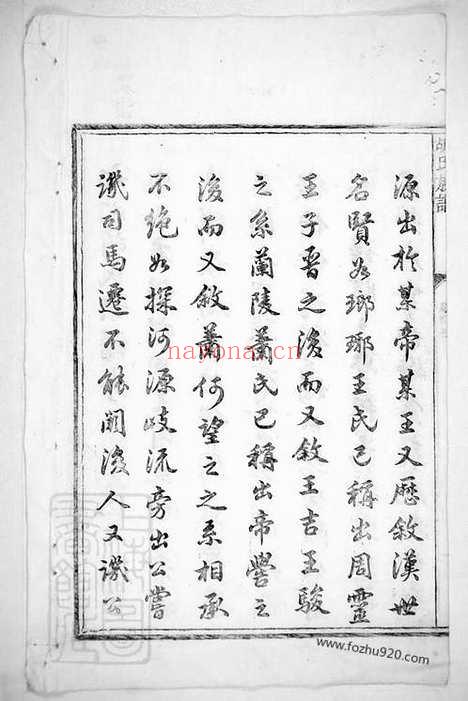 源出於某帝某王又歷敘漢世
名賢如瑯琊王氏已稱出周靈
王子晋之後而又敘王吉王駿
之系蘭陵蕭氏已稱出帝嚳之
後而又敘蕭何望之之系相承
不絶如探河源歧流旁出公嘗
譏司馬遷不能闕後人又譏公
nayona.cn
www.fozhu920.com